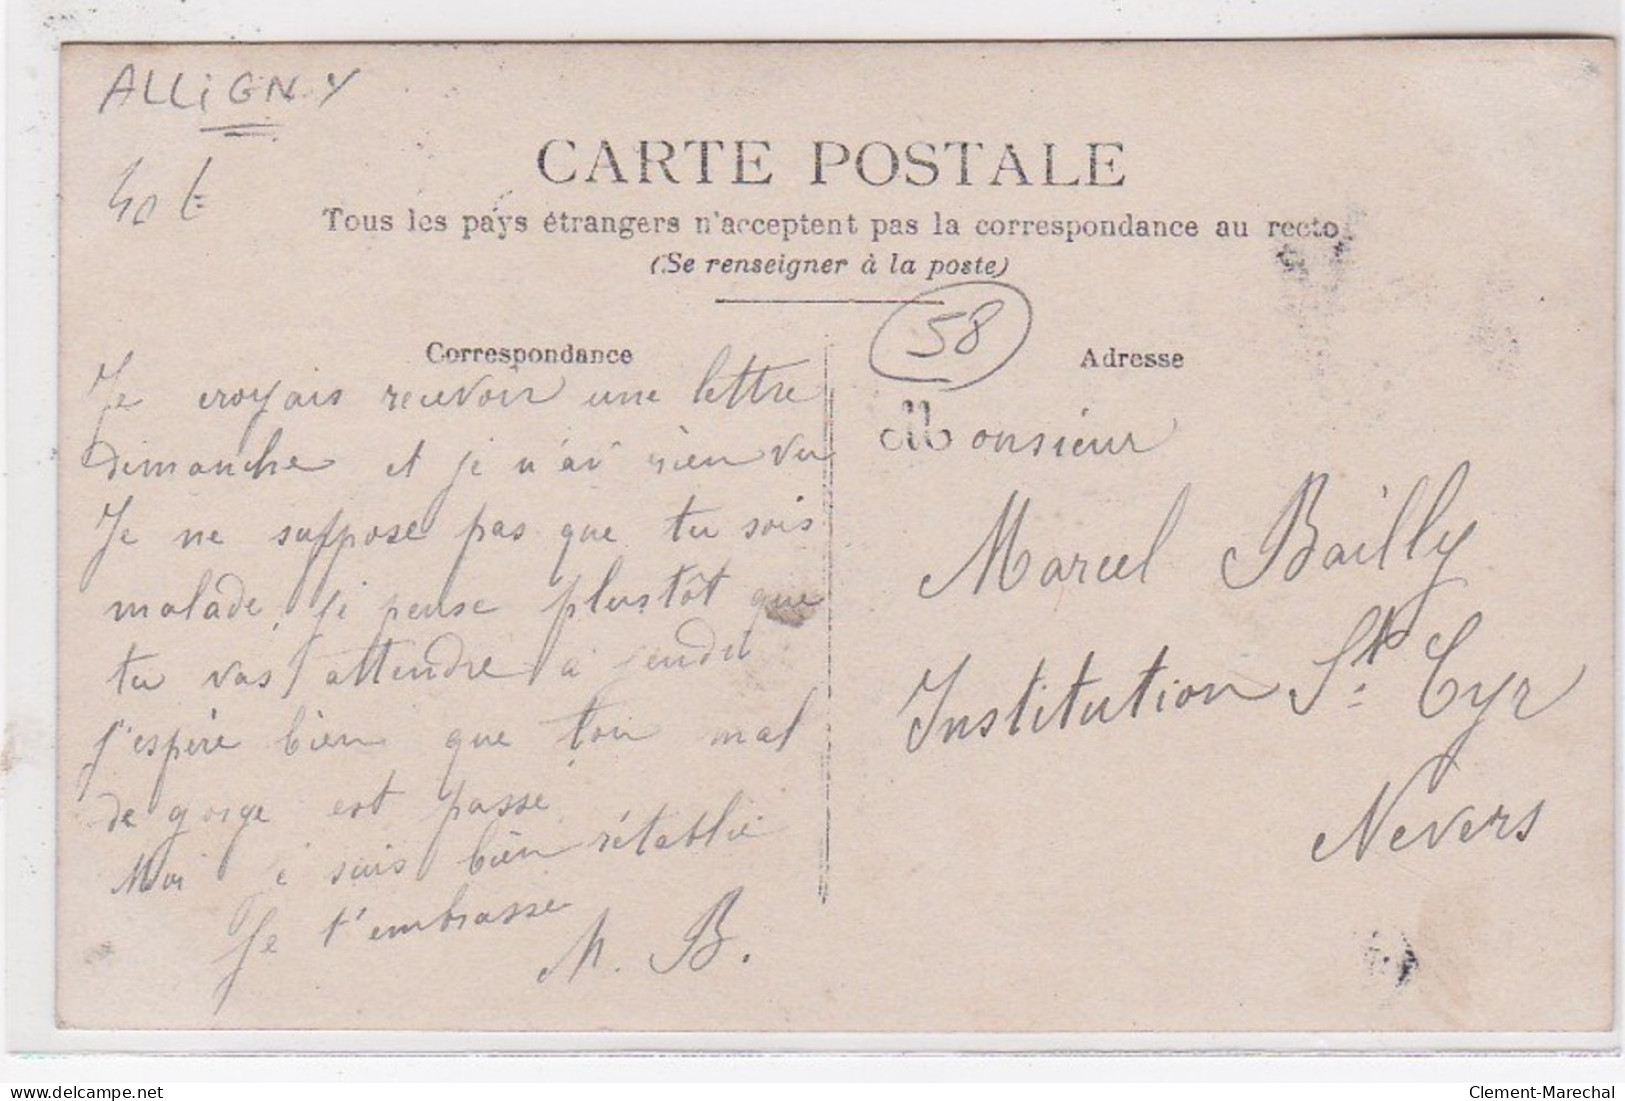 ALLiGNY
40 E
CARTE POSTALE
Tous les pays étrangers n'acceptent pas la correspondance au recto
(Se renseigner à la poste)
58
Correspondance
Je croyais recevoir une lettre
dimanche et je n'ai rien vu
Je ne suppose pas que tu sois
malade, je pense plustôt que
tu vas attendre à
j'espère bien que ton mal
de gorge est passe
Moi je suis bien rétablie
Je t'embrasse
M. B.
Adresse
Monsieur
Marcel Bailly
Institution St Cyr
Nevers
delcampe.net
Clement-Marechal